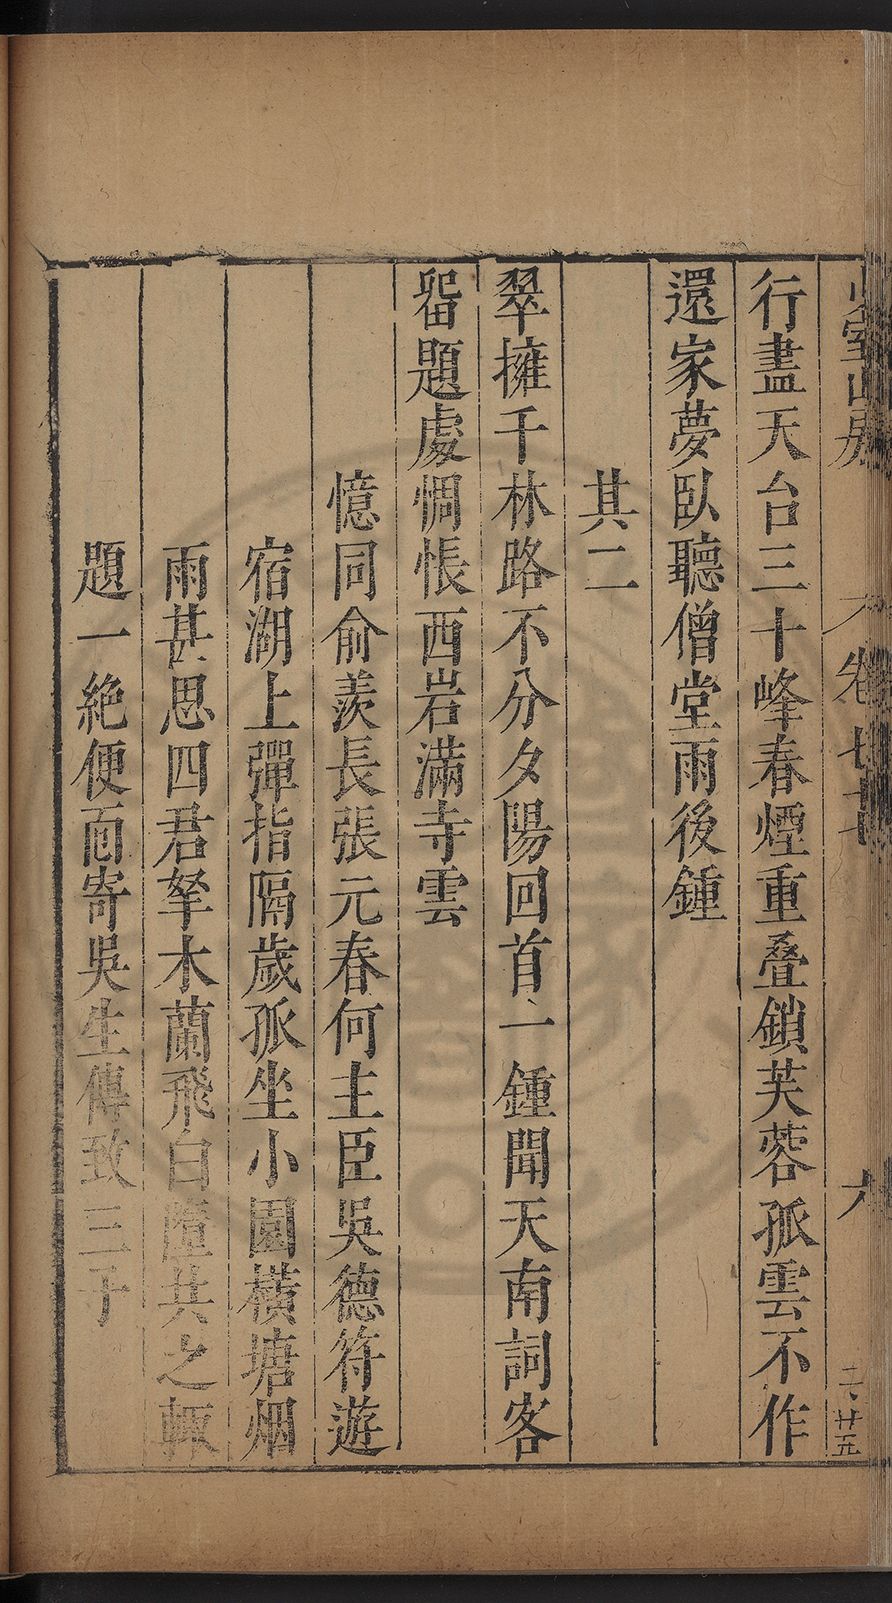 山房
卷七十
六
二·廿五
行盡天台三十峰春煙重疊鎖芙蓉孤雲不作
還家夢臥聽僧堂雨後鍾
其二
翠擁千林路不分夕陽回首一鍾聞天南詞客
畱題處惆悵西岩滿寺雲
憶同俞羨長張元春何主臣吳德符遊
宿湖上彈指隔歲孤坐小園橫塘烟
雨甚思四君拏木蘭飛白墮共之輙
題一絶便面寄吳生傳致三子